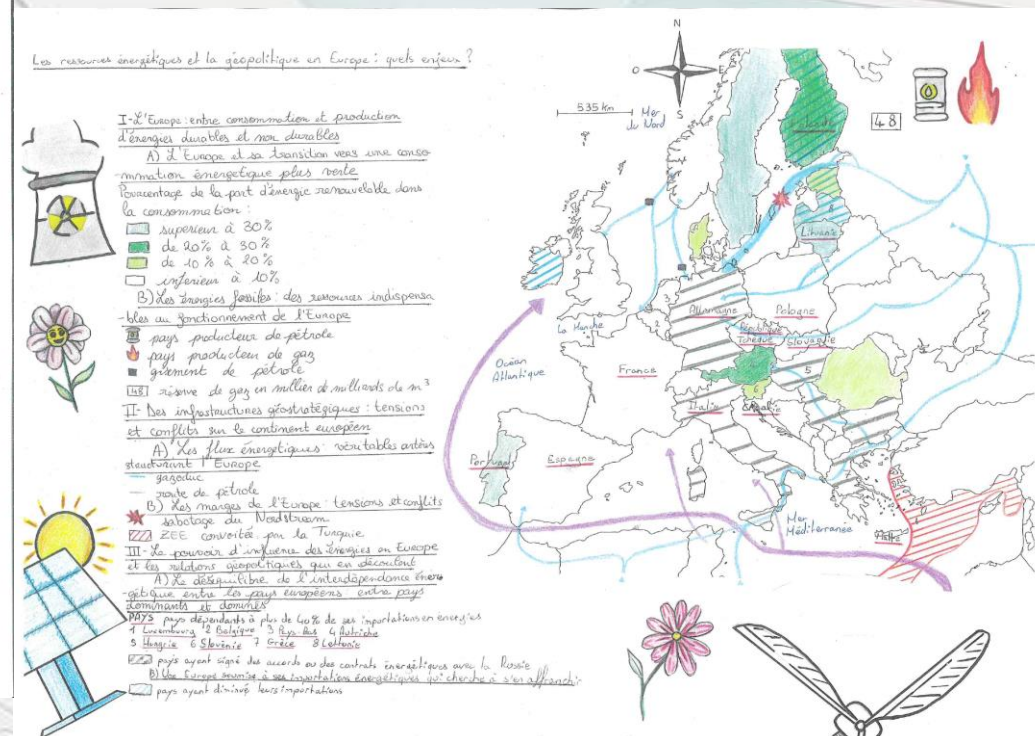 Les ressources énergétiques et la géopolitique en Europe : quels enjeux ?
I-L'Europe : entre consommation et production
d'énergies durables et non durables
A) L'Europe et sa transition vers une conso
-mmation énergetique plus verte
Pourcentage de la part d'énergie renouvelable dans
la consommation :
superieur à 30%
de 20% à 30%
de 10% à 20%
inferieur à 10%
B) Les énergies fossiles : des ressources indispensa
-bles au fonctionnement de l'Europe
pays producteur de pétrole
pays producteur de gaz
gisement de pétrole
48 réserve de gaz en millier de milliards de m³
II- Des infrastructures géostratégiques : tensions
et conflits sur le continent européen
A) Les flux énergétiques : véritables artères
structurant l'Europe
gazoduc
route de pétrole
B) Les marges de l'Europe : tensions et conflits
sabotage du Nordstream
ZEE convoitée par la Turquie
III- Le pouvoir d'influence des énergies en Europe
et les relations géopolitiques qui en découlent
A) Le déséquilibre de l'interdépendance éner
-gétique entre les pays européens entre pays
dominants et dominés
PAYS pays dépendants à plus de 40% de ses importations en énergies
1 Luxembourg 2 Belgique 3 Pays-Bas 4 Autriche
5 Hongrie 6 Slovénie 7 Grèce 8 Lettonie
pays ayant signé des accords ou des contrats énergétiques avec la Russie
B) Une Europe soumise à ses importations énergétiques qui cherche à s'en affranchir
pays ayant diminué leurs importations
N
O
E
S
535 km
Mer
du Nord
48
Lituanie
La Manche
Allemagne
Pologne
République
Tchèque
Slovaquie
Océan
Atlantique
France
5
Italie
Croatie
Portugal
Espagne
Mer
Méditerranée
Malte